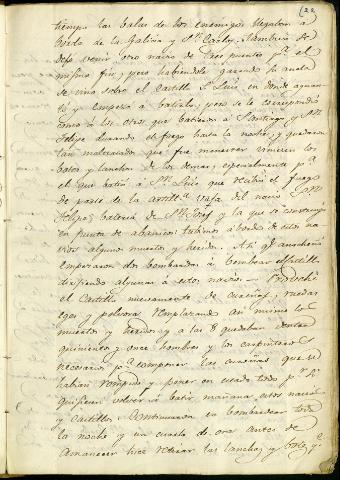 (22
tiempo las balas de los enemigos llegaban á
bordo de la Galicia y Sn. Carlos, tambien se
dejo venir otro navio de tres puentes pa. el
mismo fin, pero habiendole
se vino sobre el Castillo S. Luis, en donde aguan-
tó y empezó á batirlo, pero se le correspondio
como á los otros que batieron á Santiago, y Sn.
Felipe durando el fuego hasta la noche, y quedaron
tan maltratados que fue menester viniesen los
botes y lanchas de los demas, especialmente pa.
el que batió á Sn. Luis que recibió el fuego
de parte de la artilla. rasa del navio Sn.
Felipe, bateria de Sn. Josef y la que se construyó
en punta de abanicos: tubimos á bordo de estos na-
vios algunos muertos y heridos. Asi qe. anochecio
empezaron dos bombardas á bombear el Castillo
dirigiendo algunas á estos navios
el Castillo nuevamente de cureñas, ruedas
eges y polvora, remplazando asi mismo los
muertos y heridos, y a las 8 quedaban dentro
quinientos y once hombres y los carpinteros
necesarios pa. componer las cureñas que se
habian rompido, y poner en estado todo pr. si
quisieran volver á batir mañana estos navios
y Castillos. Continuaron en bombardear toda
la noche y un cuarto de ora antes de
amanecer hice retirar las lanchas y botes qe.